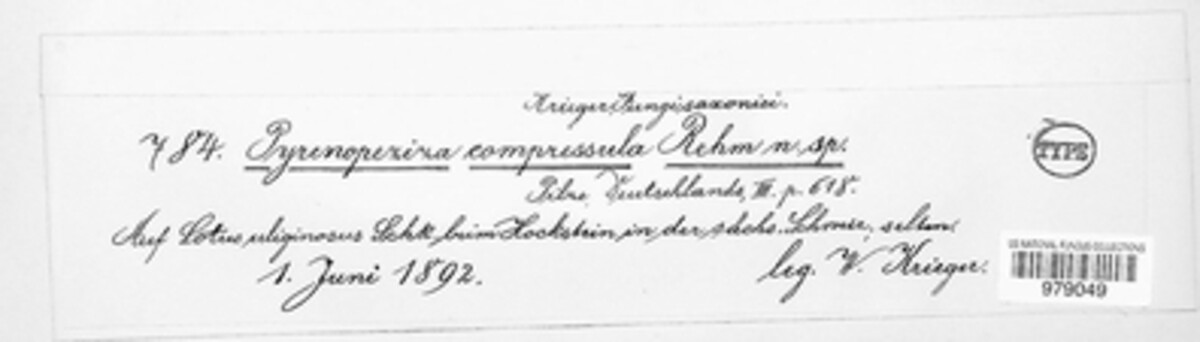 Krieger, Fungi saxonici.
784. Pyrenopeziza compressula Rehm n. sp.
TYPE
Pilze Deutschlands, III. p. 618.
Auf Lotus uliginosus Schk. beim Hockstein in der sächs. Schweiz, selten.
1. Juni 1892.
leg. W. Krieger.
US NATIONAL FUNGUS COLLECTIONS
979049